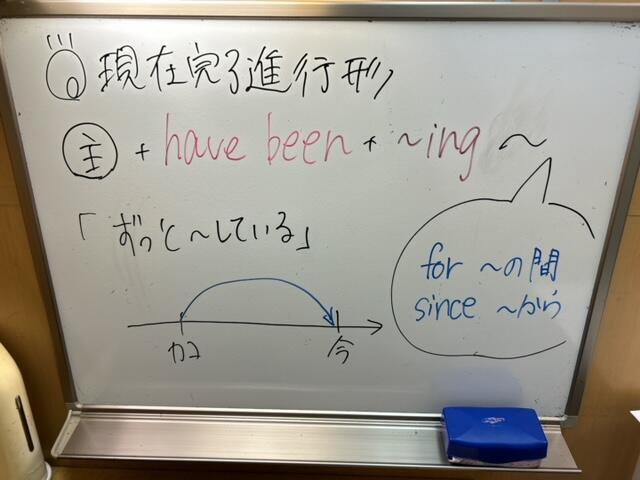 現在完了進行形
主 + have been + ~ing ~
「ずっと~している」
for ~の間
since ~から
カコ
今